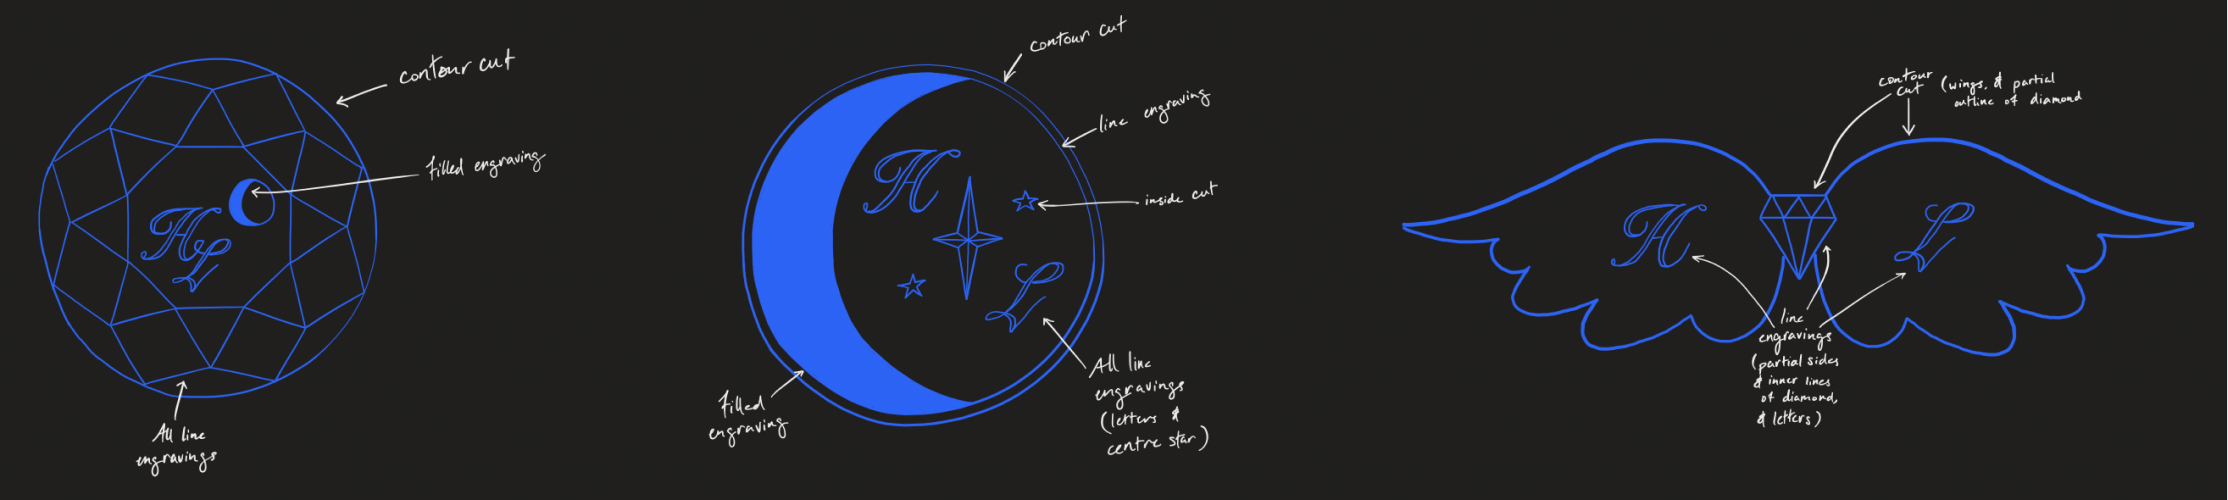 contour cut
filled engraving
H
L
All line
engravings
contour cut
line engraving
inside cut
H
L
filled
engraving
All line
engravings
(letters &
centre star)
contour
cut
(wings, & partial
outline of diamond
H
L
line
engravings
(partial sides
& inner lines
of diamond,
& letters)